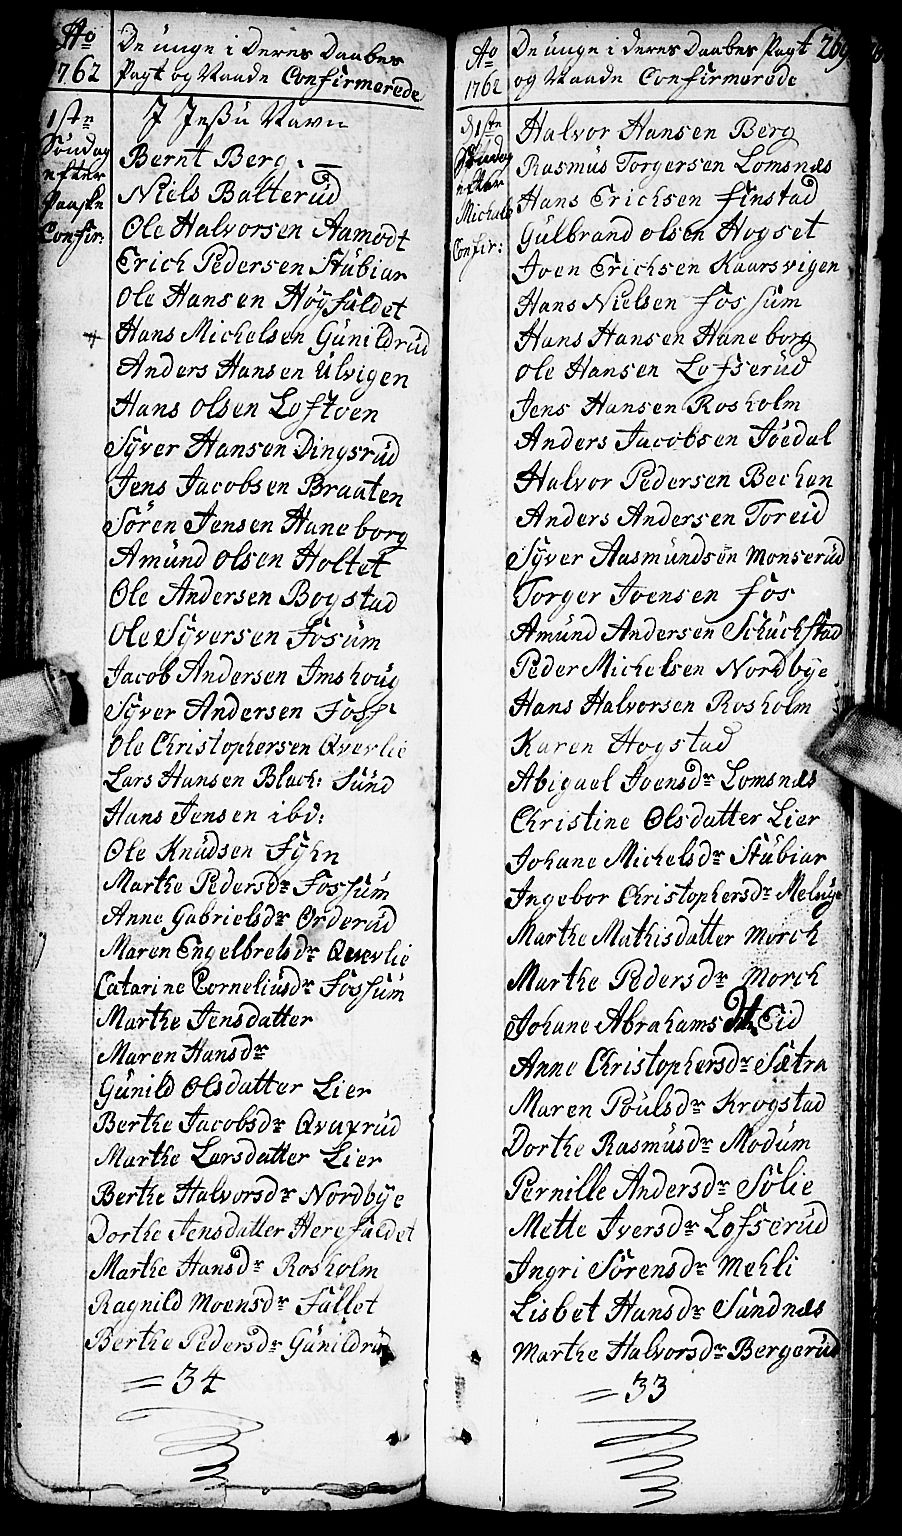 Ao
1762
De ünge i Deres Daabes
Pagt og Naade Confirmerede
1ste
Søndag
efter
Paaske
Confir:
J Jesü Navn
Bernt Berg.
Niels Batterüd
Ole Halvorsen Aamodt
Erich Pedersen Stübiar
Ole Hansen Høyfaldet
Hans Michelsen Günildrüd
Anders Hansen Ulvigen
Hans Olsen Loftoen
Syver Hansen Dingsrüd
Jens Jacobsen Braaten
Søren Jensen Haneborg
Amünd Olsen Holtet
Ole Andersen Bogstad
Ole Syversen Fosüm
Jacob Andersen Imshoug
Syver Andersen Foss
Ole Christophersen Qverlie
Lars Hansen Black: Sünd
Hans Jensen ibd:
Ole Knüdsen Fyhn
Marthe Pedersdr Fossüm
Anne Gabrielsdr Orderüd
Maren Engelbretsdr Qverlie
Catarine Corneliüsdr Fossüm
Marthe Jensdatter
Maren Hansdr
Günild Olsdatter Lier
Berthe Jacobsdr Qvaxrüd
Marthe Larsdatter Lier
Berthe Halvorsdr Nordbye
Dorthe Jensdatter Herefaldet
Marthe Hansdr Rosholm
Ragnild Moensdr Fallet
Berthe Pedersdr Günildrüd
= 34
Ao
1762
De ünge i deres Daabes Pagt 269
og Naade Confirmerede
d 1ste
Søndag
efter
Michals
Confir:
Halvor Hansen Berg
Rasmus Torgersen Lomsnæs
Hans Erichsen Finstad
Gülbrand olsen Hogset
Joen Erichsen Kaarsvigen
Hans Nielsen Fossüm
Hans Hansen Haneborg
Ole Hansen Lofserüd
Jens Hansen Rosholm
Anders Jacobsen Jøedal
Halvor Pedersen Bechen
Anders Andersen Toreid
Syver Aasmündsen Monserüd
Torger Joensen Fos
Amünd Andersen Schüchstad
Peder Michelsen Nordbye
Hans Halvorsen Rosholm
Karen Hogstad
Abigael Joensdr Lomsnæs
Christine Olsdatter Lier
Johane Michelsdr Stübiar
Ingebor Christophersdr Melbye
Marthe Mathisdatter Morch
Marthe Pedersdr Morch
Johane Abrahams Dt. Eid
Anne Christophersdr Sætra
Maren Poülsdr Krogstad
Dorthe Rasmüsdr Modüm
Pernille Andersdr Solie
Mette Iversdr Lofserüd
Ingri Sörensdr Mehli
Lisbet Hansdr Sundnæs
Marthe Halvorsdr Bergerüd
= 33